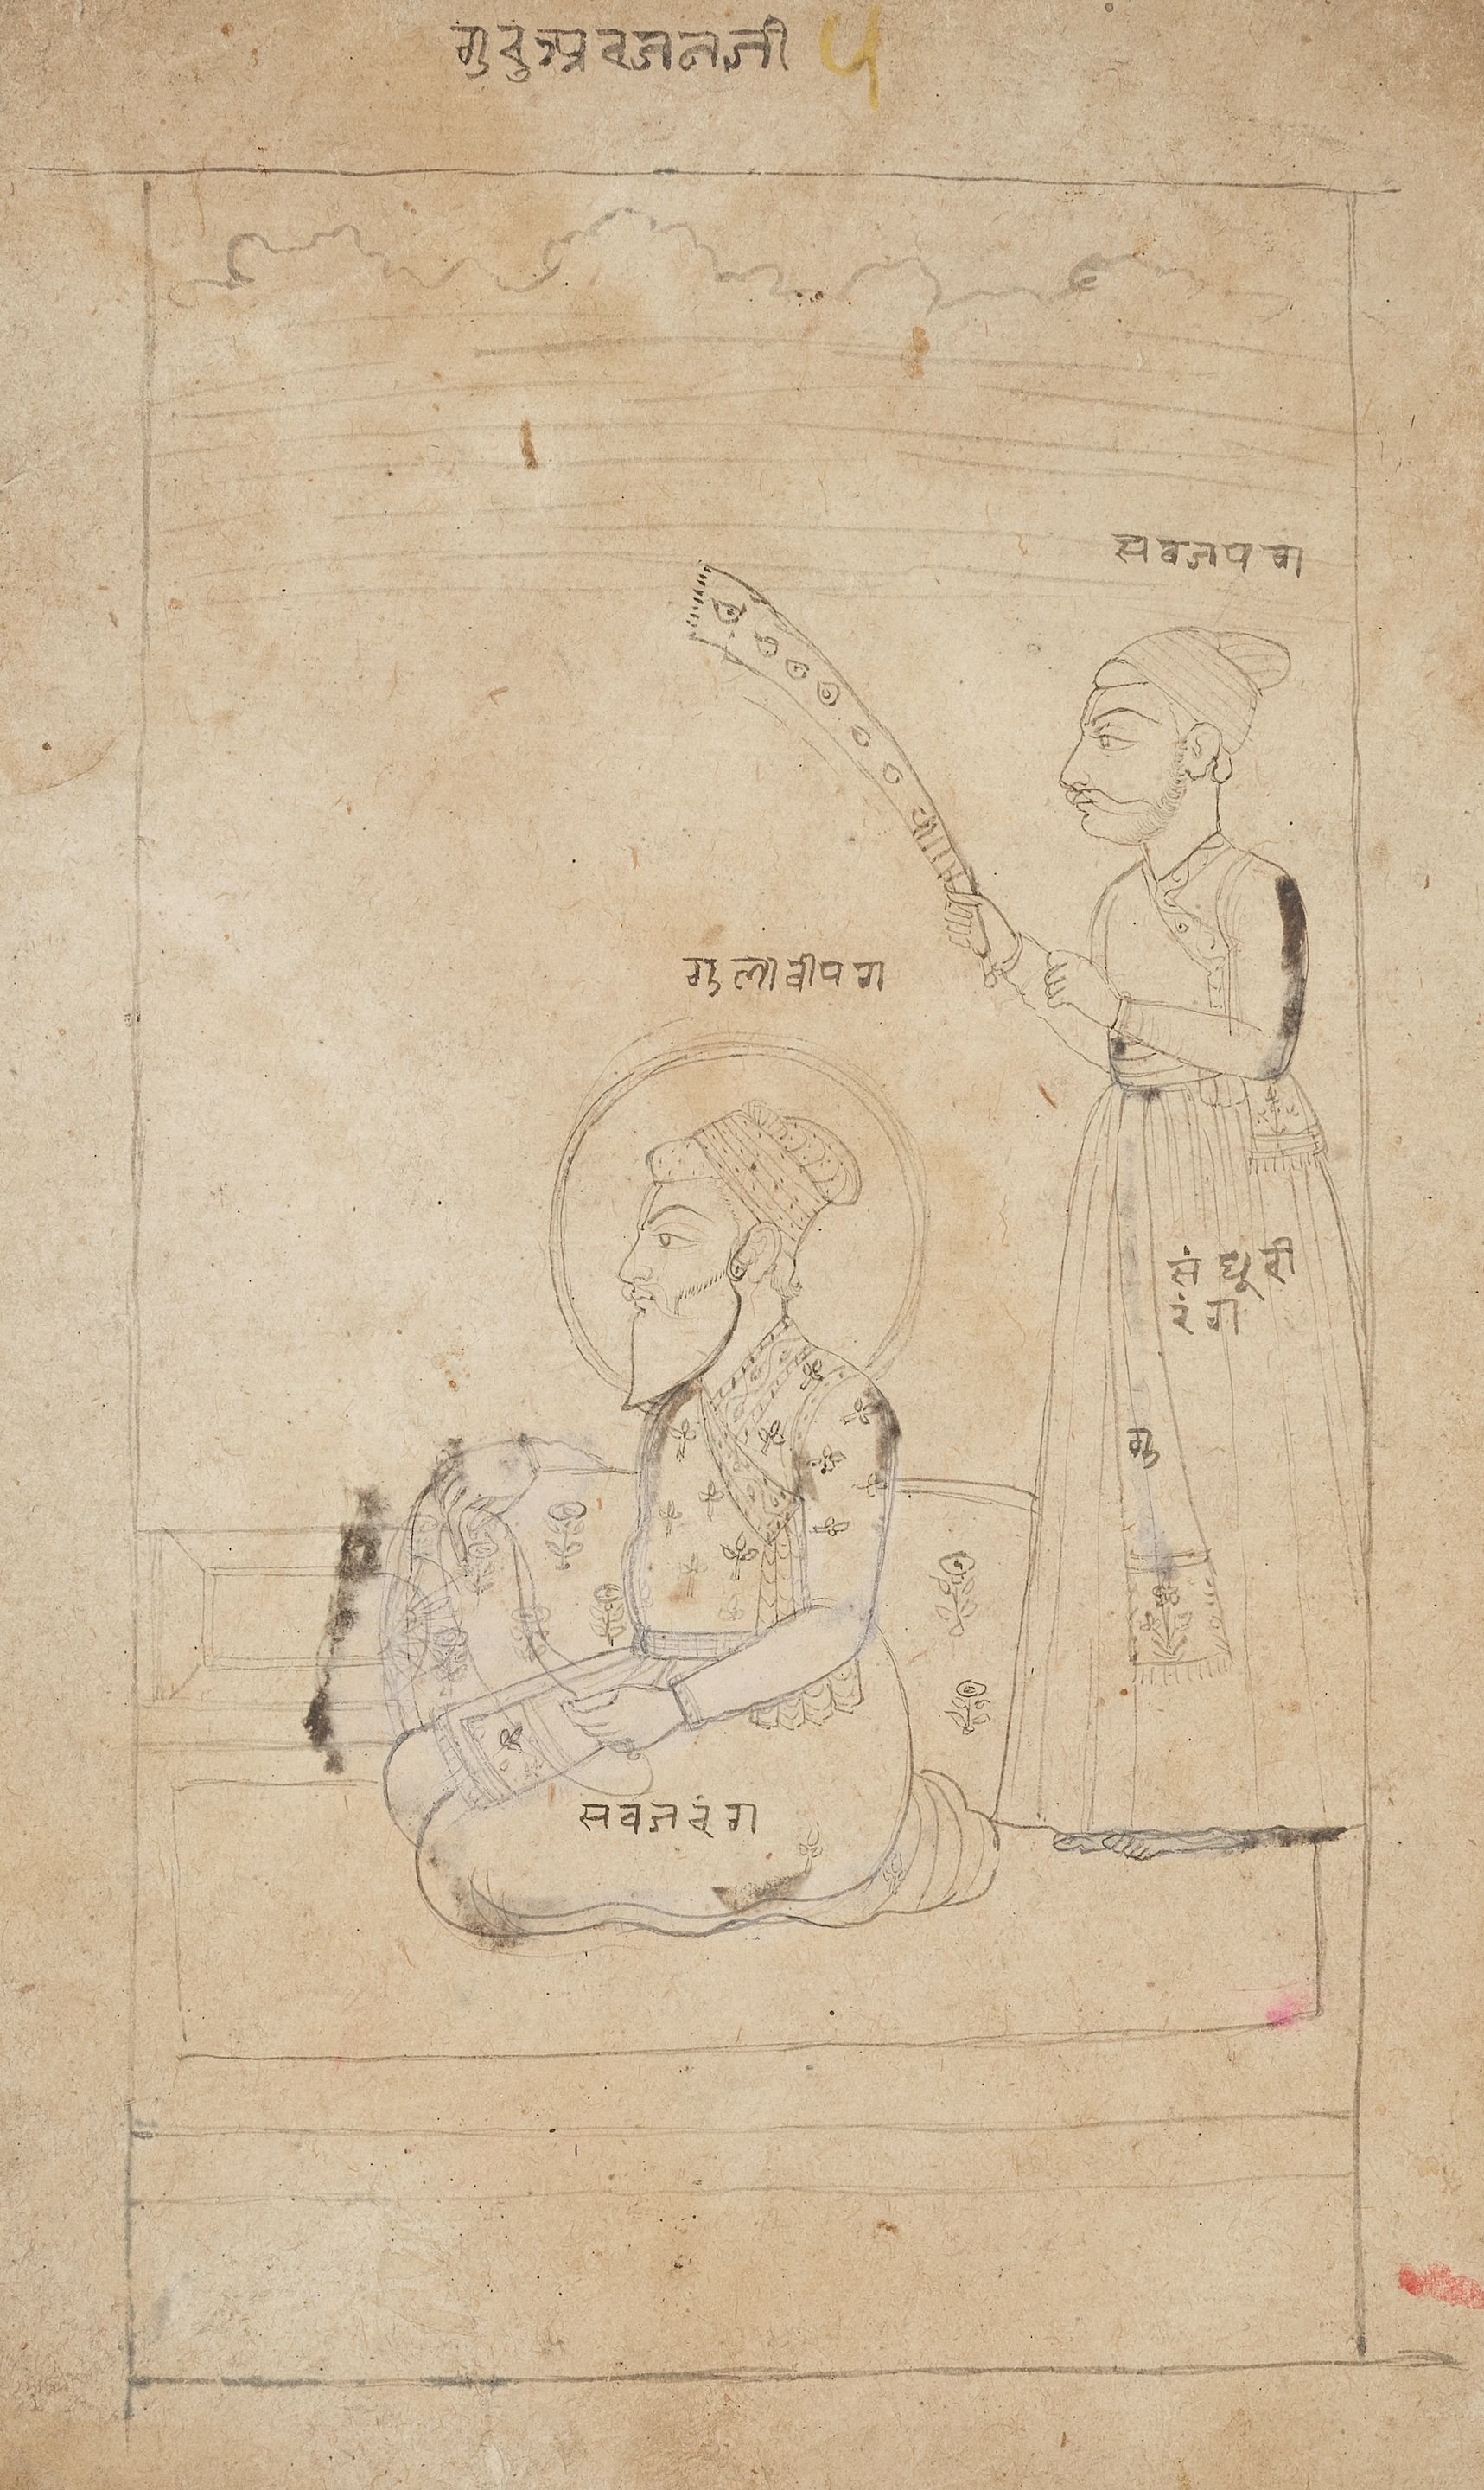 गुरुअरजनजी ५
सबजपग
गुलाबीपग
संधूरी
रंग
गु
सबजरंग